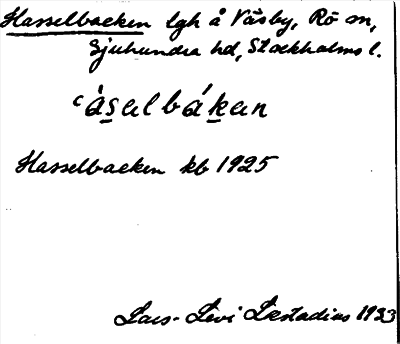 Hasselbacken lgh å Väsby, Rö sn,
Sjuhundra hd, Stockholms l.
‘àsalbákan
Hasselbacken kb 1925
Lars-Levi Læstadius 1933